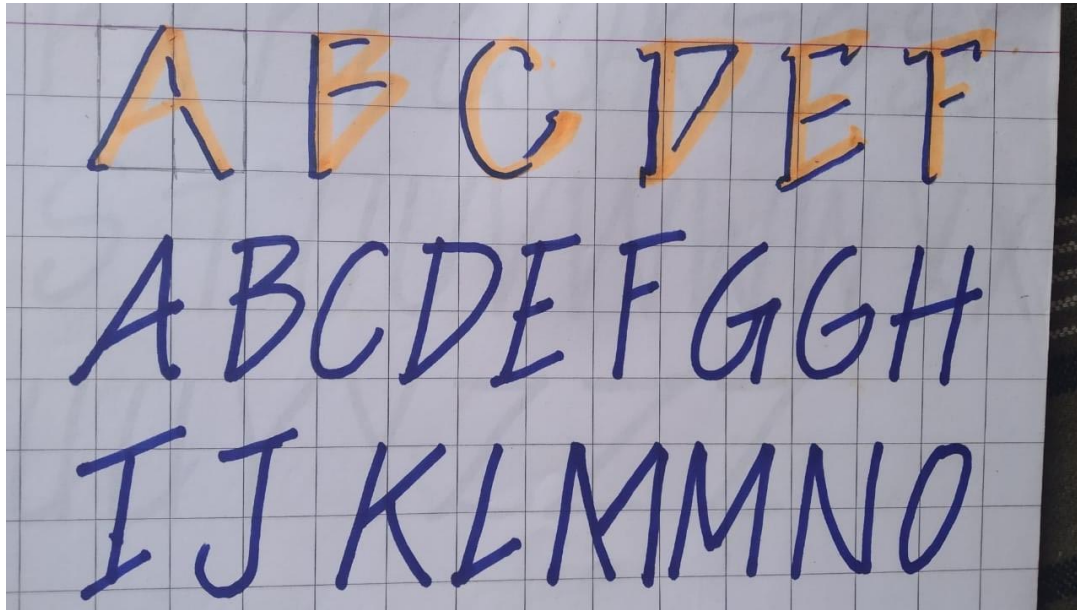 A B C D E F
A B C D E F G G H
I J K L M M N O